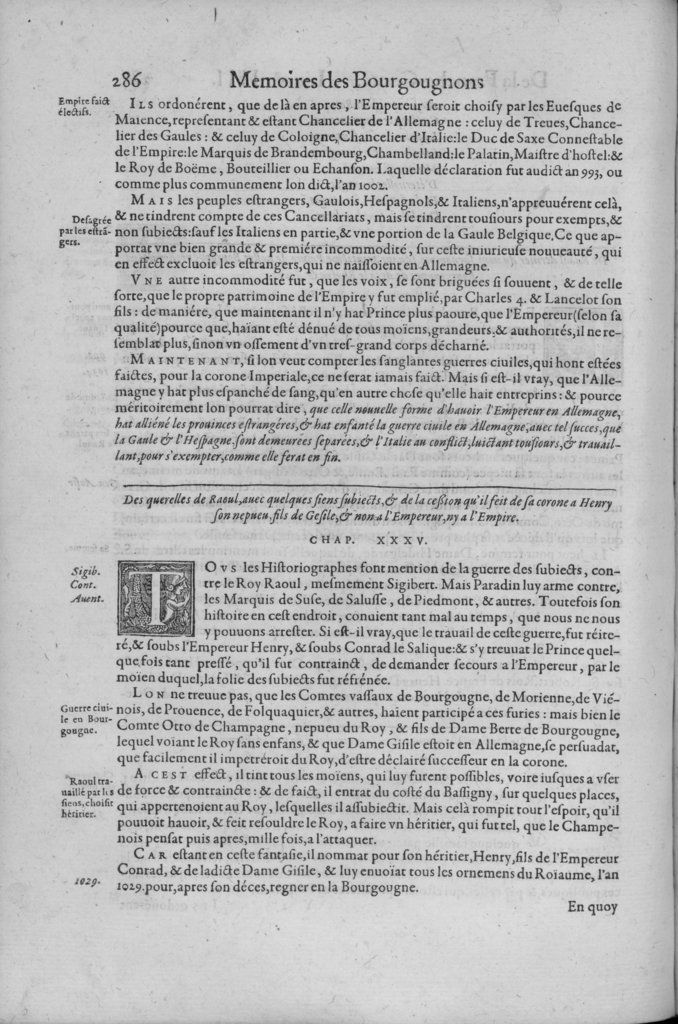 286 Memoires des Bourgougnons
Empire faict
électifs.
ILS ordonérent, que de là en apres, l'Empereur ſeroit choiſy par les Eueſques de
Maience, repreſentant & eſtant Chancelier de l'Allemagne : celuy de Treues, Chance-
lier des Gaules : & celuy de Coloigne, Chancelier d'Italie: le Duc de Saxe Conneſtable
de l'Empire: le Marquis de Brandembourg, Chambelland: le Palatin, Maiſtre d'hoſtel: &
le Roy de Boëme, Bouteillier ou Echanſon. Laquelle déclaration fut audict an 993, ou
comme plus communement lon dict, l'an 1002.
Deſagrée
par les eſtrã-
gers.
MAIS les peuples eſtrangers, Gaulois, Heſpagnols, & Italiens, n'appreuuérent celà,
& ne tindrent compte de ces Cancellariats, mais ſe tindrent touſiours pour exempts, &
non ſubiects: ſauf les Italiens en partie, & vne portion de la Gaule Belgique. Ce que ap-
portat vne bien grande & premiére incommodité, ſur ceſte iniurieuſe nouueauté, qui
en effect excluoit les eſtrangers, qui ne naiſſoient en Allemagne.
VNE autre incommodité fut, que les voix, ſe ſont briguées ſi ſouuent, & de telle
ſorte, que le propre patrimoine de l'Empire y fut emplié, par Charles 4. & Lancelot ſon
fils : de maniére, que maintenant il n'y hat Prince plus paoure, que l'Empereur (ſelon ſa
qualité) pource que, haïant eſté dénué de tous moïens, grandeurs, & authorités, il ne re-
ſemblat plus, ſinon vn oſſement d'vn treſ-grand corps décharné.
MAINTENANT, ſi lon veut compter les ſanglantes guerres ciuiles, qui hont eſtées
faictes, pour la corone Imperiale, ce ne ſerat iamais faict. Mais ſi eſt-il vray, que l'Alle-
magne y hat plus eſpanché de ſang, qu'en autre choſe qu'elle hait entreprins : & pource
méritoirement lon pourrat dire, que celle nouuelle forme d'hauoir l'Empereur en Allemagne,
hat alliéné les prouinces eſtrangéres, & hat enfanté la guerre ciuile en Allemagne, auec tel ſucces, que
la Gaule & l'Heſpagne, ſont demeurées ſeparées, & l'Italie au conflict, luictant touſiours, & trauail-
lant, pour s'exempter, comme elle ferat en fin.
Des querelles de Raoul, auec quelques ſiens ſubiects, & de la ceſſion qu'il feit de ſa corone a Henry
ſon nepueu, fils de Geſile, & non a l'Empereur, ny a l'Empire.
CHAP. XXXV.
Sigib.
Cont.
Auent.
TOVS les Hiſtoriographes font mention de la guerre des ſubiects, con-
tre le Roy Raoul, meſmement Sigibert. Mais Paradin luy arme contre,
les Marquis de Suſe, de Saluſſe, de Piedmont, & autres. Toutefois ſon
hiſtoire en ceſt endroit, conuient tant mal au temps, que nous ne nous
y pouuons arreſter. Si eſt-il vray, que le trauail de ceſte guerre, fut réite-
ré, & ſoubs l'Empereur Henry, & ſoubs Conrad le Salique: & s'y treuuat le Prince quel-
que fois tant preſſé, qu'il fut contrainct, de demander ſecours a l'Empereur, par le
moien duquel, la folie des ſubiects fut réfrénée.
Guerre ciui-
le en Bour-
gougne.
LON ne treuue pas, que les Comtes vaſſaux de Bourgougne, de Morienne, de Vié-
nois, de Prouence, de Folquaquier, & autres, haient participé a ces furies : mais bien le
Comte Otto de Champagne, nepueu du Roy, & fils de Dame Berte de Bourgougne,
lequel voïant le Roy ſans enfans, & que Dame Giſile eſtoit en Allemagne, ſe perſuadat,
que facilement il impetréroit du Roy, d'eſtre déclairé ſucceſſeur en la corone.
Raoul tra-
uaillé par les
ſiens, choiſit
héritier.
A CEST effect, il tint tous les moïens, qui luy furent poſſibles, voire iuſques a vſer
de force & contraincte : & de faict, il entrat du coſté du Baſſigny, ſur quelques places,
qui appertenoient au Roy, leſquelles il aſſubiectit. Mais celà rompit tout l'eſpoir, qu'il
pouuoit hauoir, & feit reſouldre le Roy, a faire vn héritier, qui fut tel, que le Champe-
nois penſat puis apres, mille fois, a l'attaquer.
CAR eſtant en ceſte fantaſie, il nommat pour ſon héritier, Henry, fils de l'Empereur
Conrad, & de ladicte Dame Giſile, & luy enuoïat tous les ornemens du Roïaume, l'an
1029.
1029. pour, apres ſon déces, regner en la Bourgougne.
En quoy